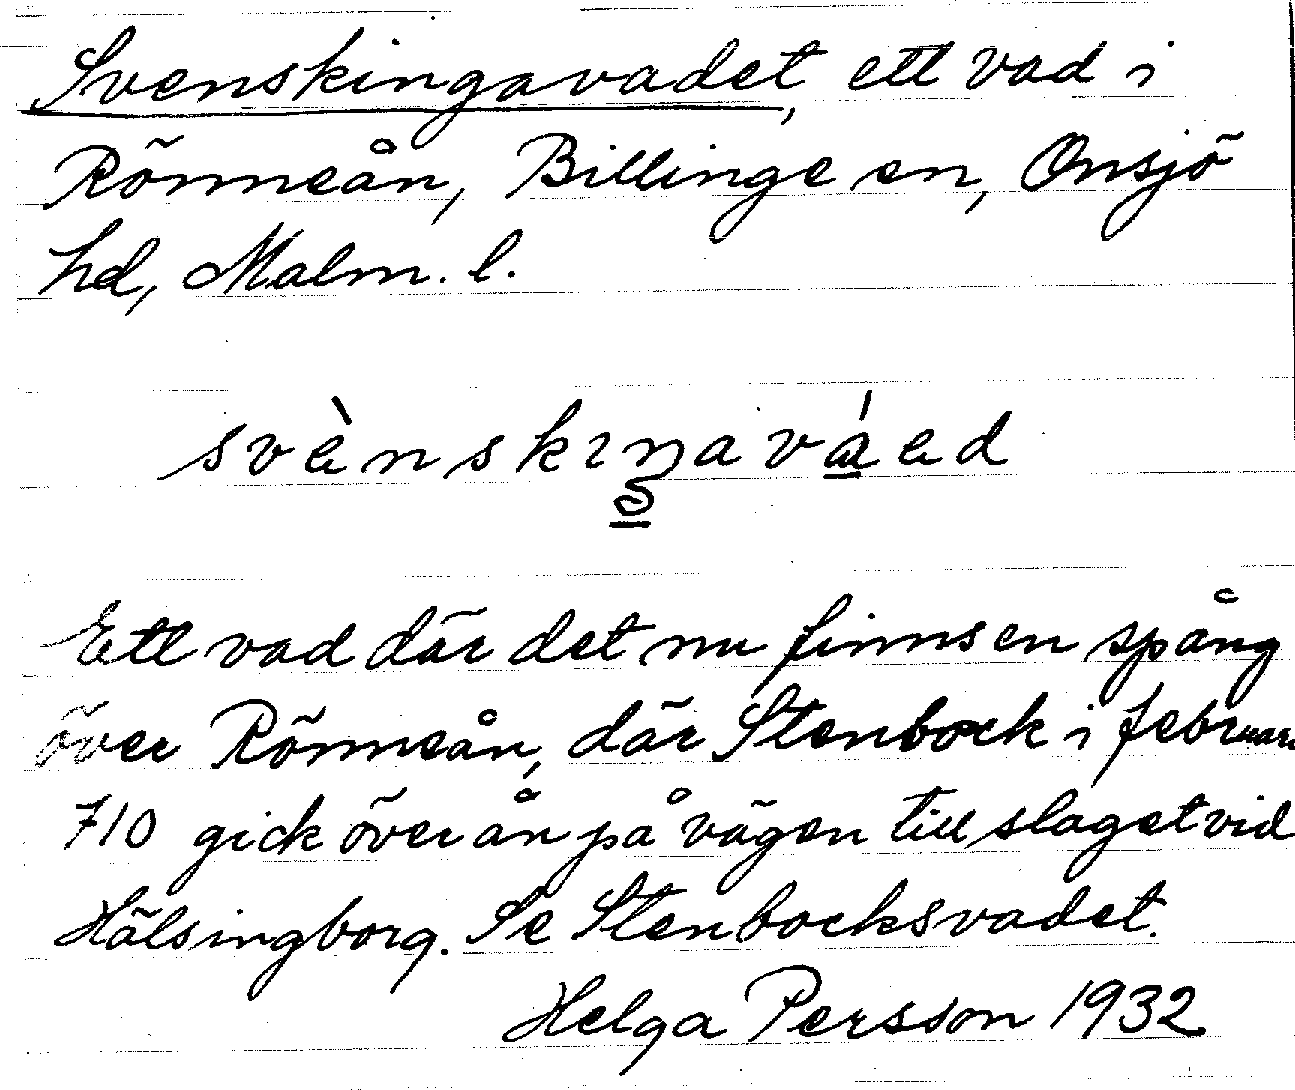 Svenskingavadet, ett vad i
Rönneån, Billinge sn, Onsjö
hd, Malm. l.
svènskıŋaváed
Ett vad där det nu finns en spång
över Rönneån, där Stenbock i februari
710 gick över ån på vägen till slaget vid
Hälsingborg. Se Stenbocksvadet.
Helga Persson 1932